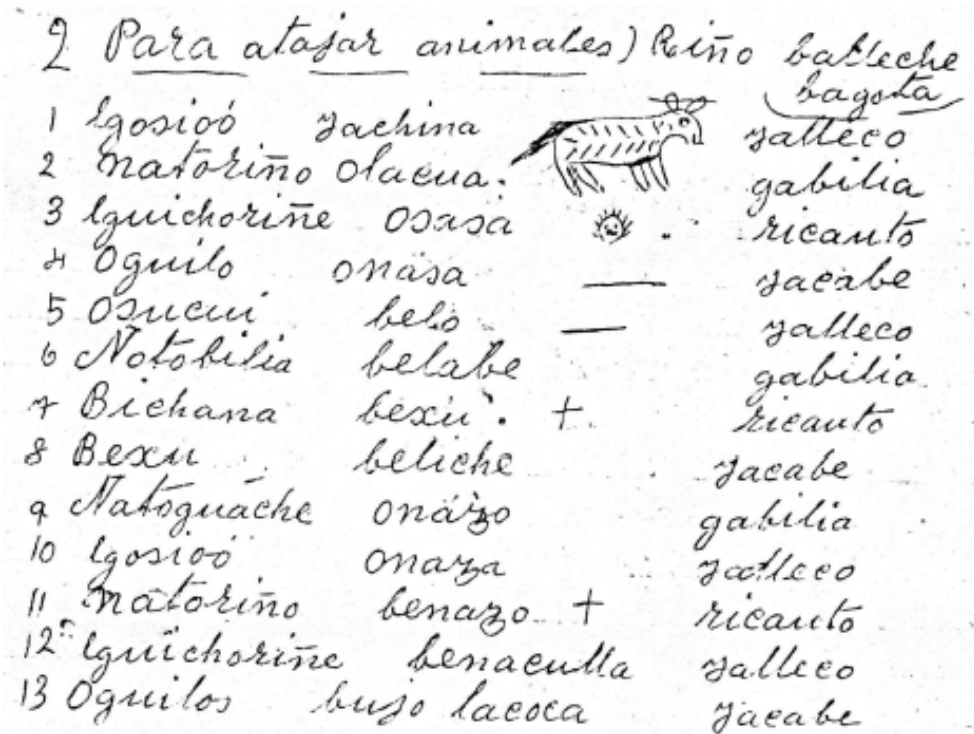 2 Para atajar animales) Riño balleche
bagota
1 lgosioó yachina yalleco
2 matoriño Olacua. gabilia
3 lguichoriñe Osasa . ricanto
4 Oguilo onasa — yacabe
5 Osucui belo — yalleco
6 Notobilia belabe gabilia
7 Bichana bexu. + ricanto
8 Bexu beliche yacabe
9 Natoguache onazo gabilia
10 lgosioó onaza yalleco
11 matoriño benazo + ricanto
12 lguichoriñe benaculla yalleco
13 Oguilos buzo lacoca yacabe